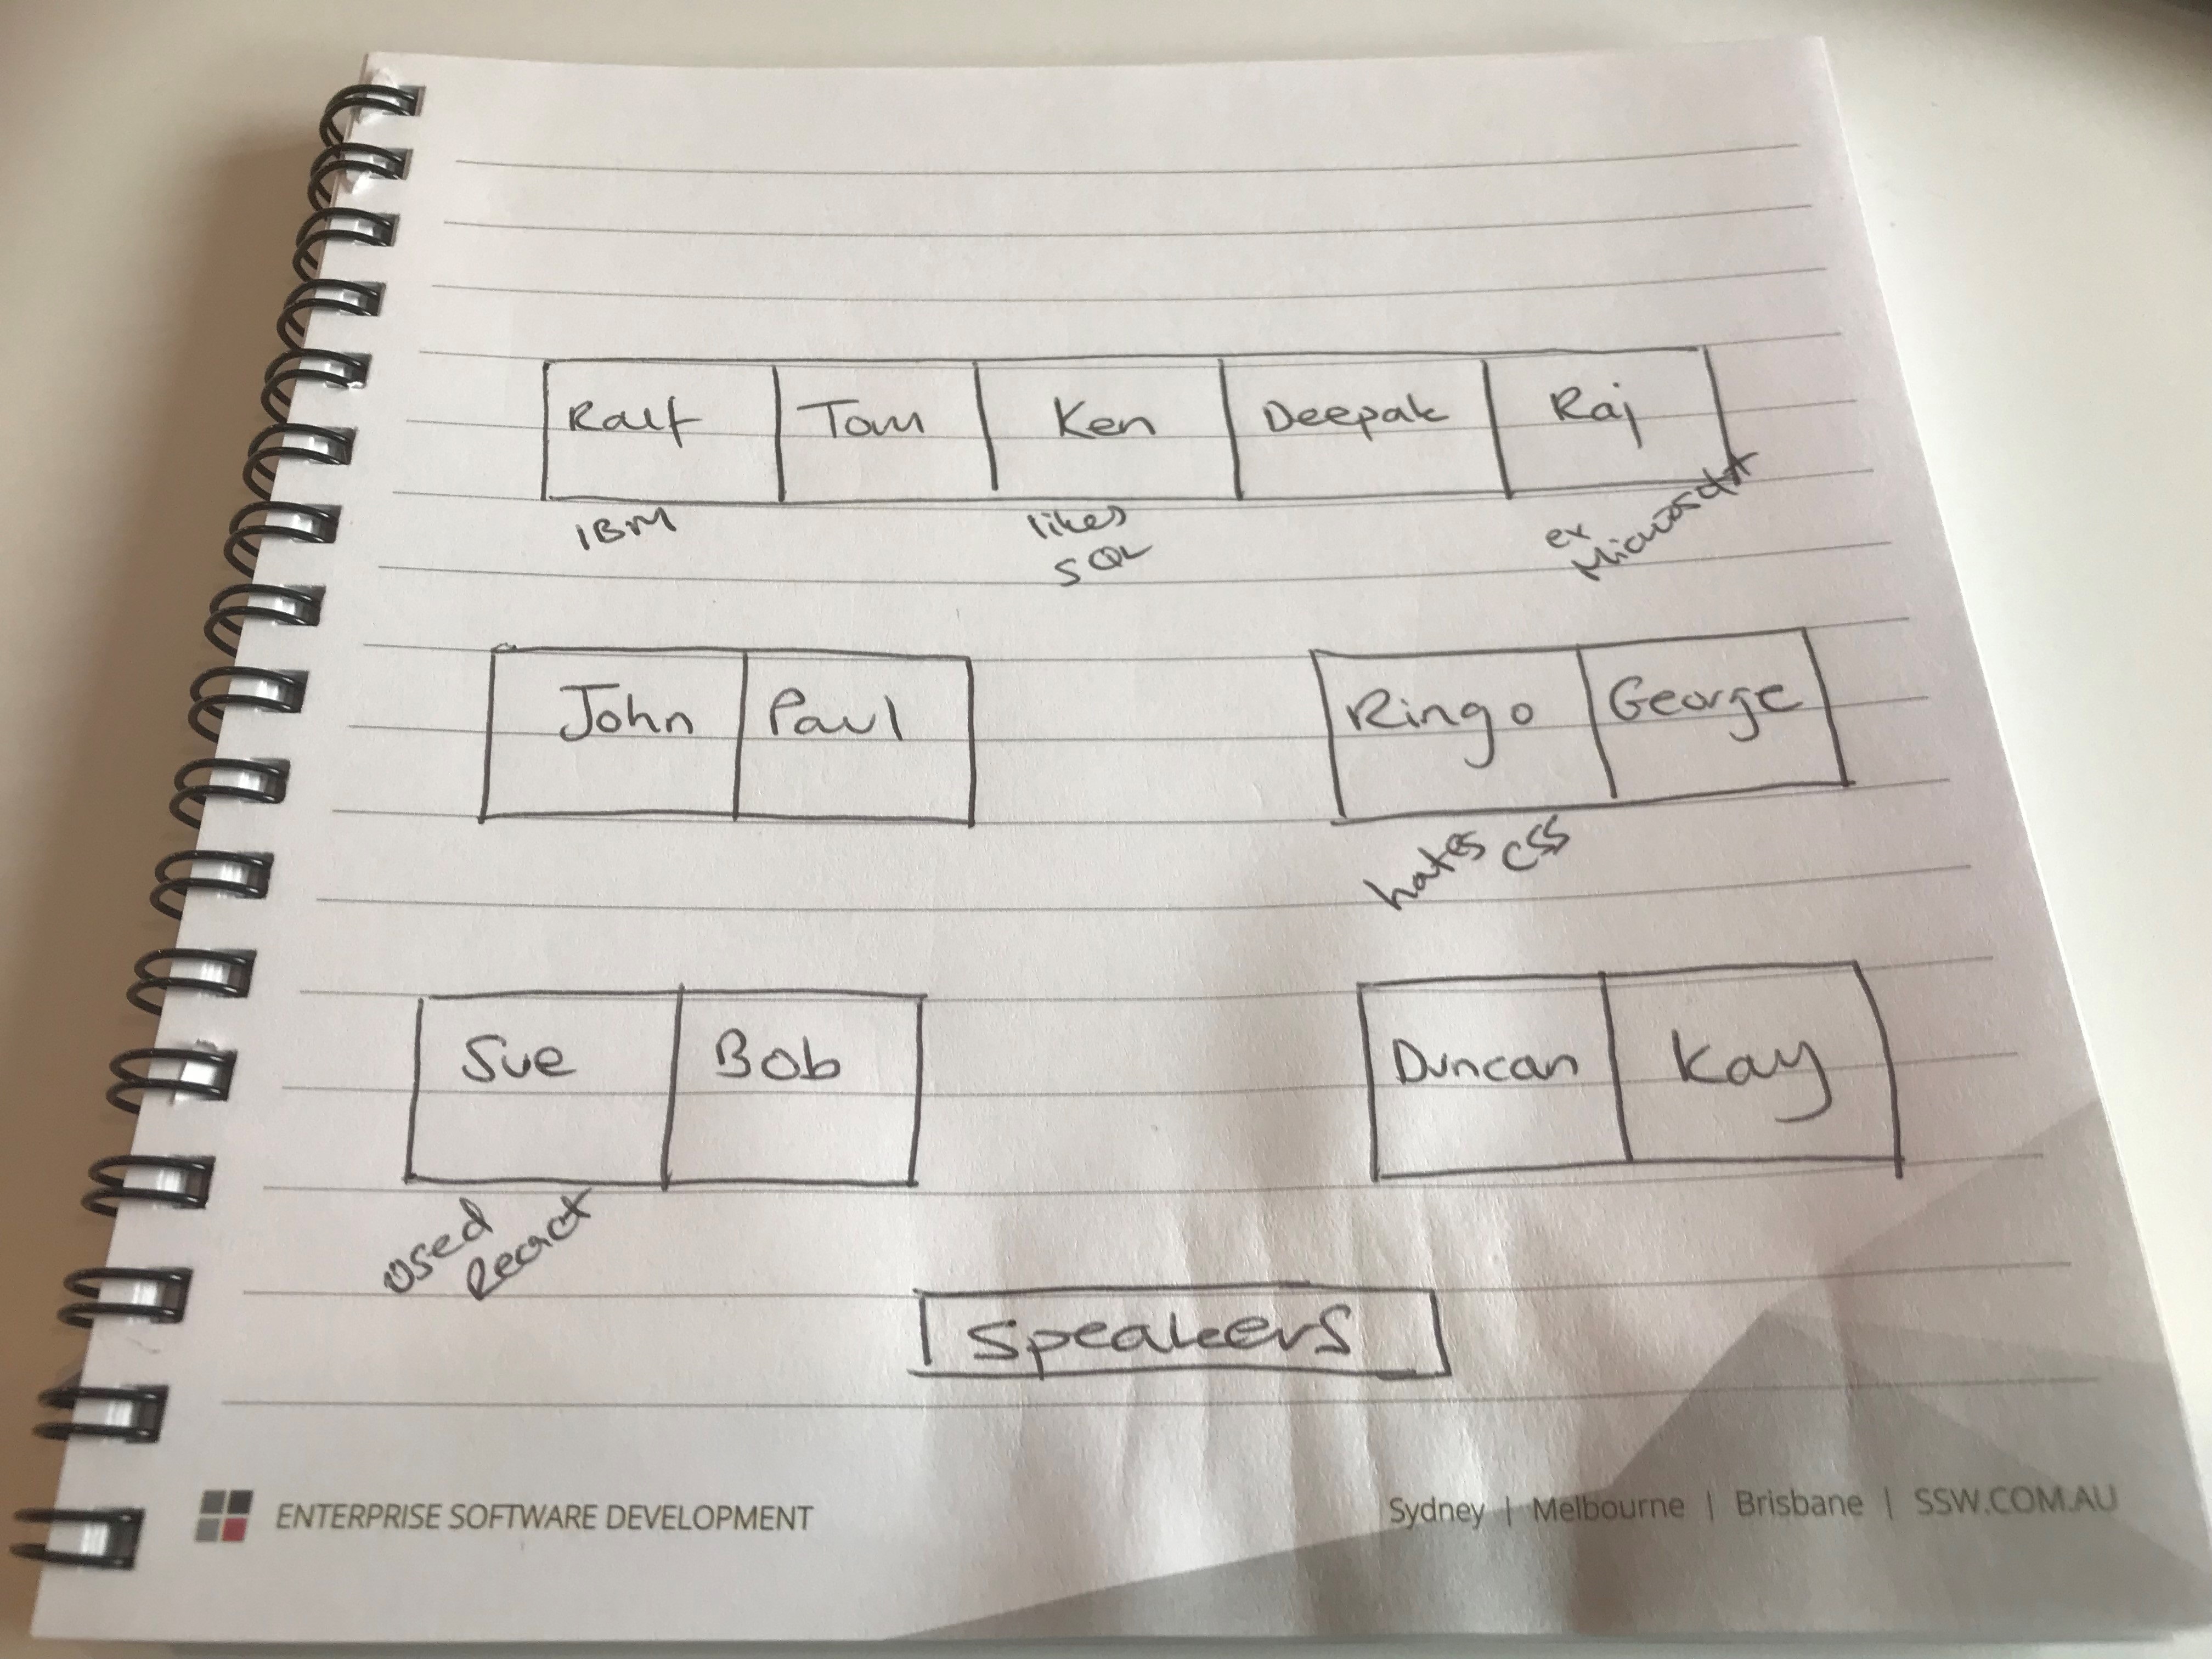 Ralf Tom Ken Deepak Raj
IBM likes ex
SQL Microsoft
John Paul Ringo George
hates CSS
Sue Bob Duncan Kay
used
React
Speakers
ENTERPRISE SOFTWARE DEVELOPMENT Sydney | Melbourne | Brisbane | SSW.COM.AU